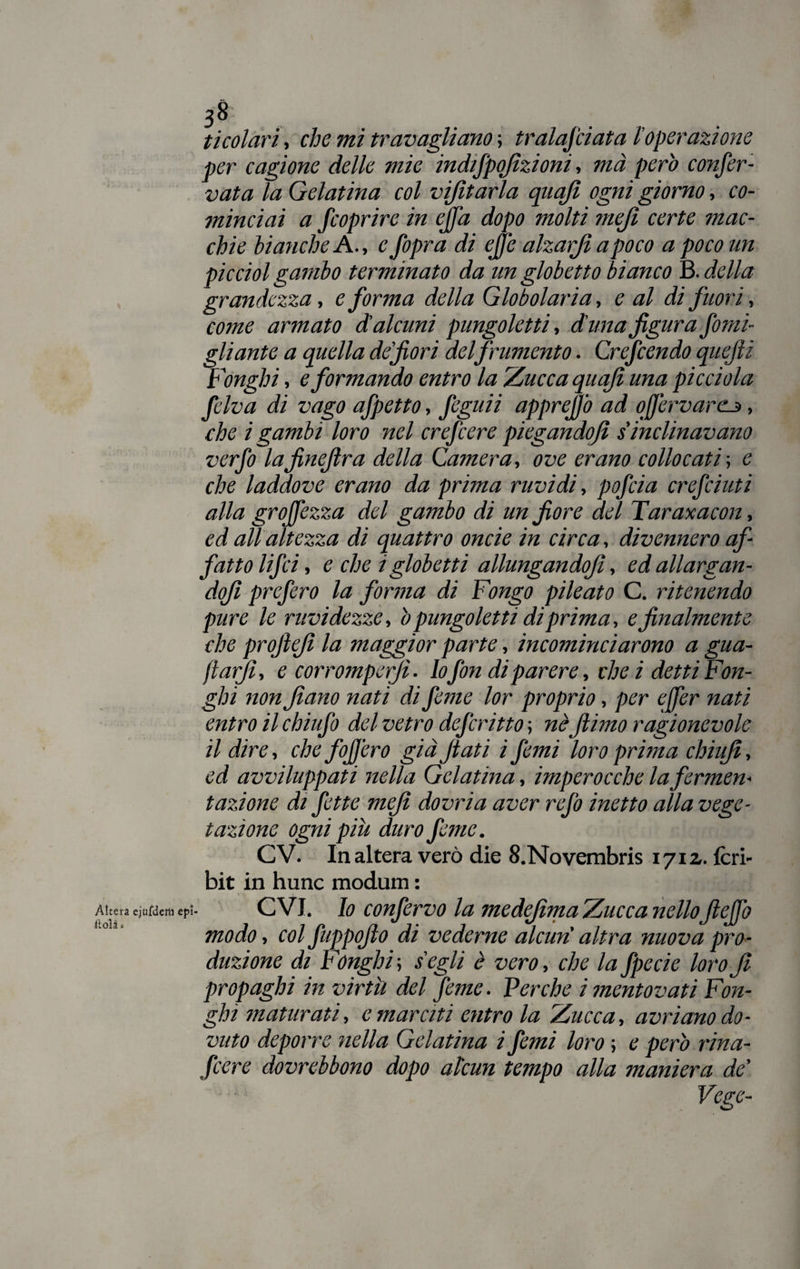 38
ticolari, che mi travagliano; tralaſciata l'operazione
per cagione delle mie indiſpoſizioni, mà però conſer-
vata la Gelatina col viſitarla quaſi ogni giorno, co-
minciai a ſcoprire in eſſa dopo molti meſi certe mac-
chie bianche A., e ſopra di eſſe alzarſi a poco a poco un
picciol gambo terminato da un globetto bianco B. della
grandezza, e forma della Globolaria, e al di fuori,
come armato d'alcuni pungoletti, d'una figura ſomi-
gliante a quella de' fiori del frumento. Creſcendo queſti
Fonghi, e formando entro la Zucca quaſi una picciola
ſelva di vago aſpetto, ſeguii appreſſo ad oſſervare,
che i gambi loro nel creſcere piegandoſi s'inclinavano
verſo la fineſtra della Camera, ove erano collocati; e
che laddove erano da prima ruvidi, poſcia creſciuti
alla groſſezza del gambo di un fiore del Taraxacon,
ed all altezza di quattro oncie in circa, divennero af-
fatto liſci, e che i globetti allungandoſi, ed allargan-
doſi preſero la forma di Fongo pileato C. ritenendo
pure le ruvidezze, ò pungoletti di prima, e finalmente
che proſteſi la maggior parte, incominciarono a gua-
ſtarſi, e corromperſi. Io ſon di parere, che i detti Fon-
ghi non ſiano nati di ſeme lor proprio, per eſſer nati
entro il chiuſo del vetro deſcritto; nè ſtimo ragionevole
il dire, che foſſero già ſtati i ſemi loro prima chiuſi,
ed avviluppati nella Gelatina, imperocche la fermen-
tazione di ſette meſi dovria aver reſo inetto alla vege-
tazione ogni più duro ſeme.
CV. In altera verò die 8.Novembris 1712. ſcri-
bit in hunc modum:
Altera ejuſdem epi-
ſtola.
CVI. Io conſervo la medeſima Zucca nello ſteſſo
modo, col ſuppoſto di vederne alcun' altra nuova pro-
duzione di Fonghi; s'egli è vero, che la ſpecie loro ſi
propaghi in virtù del ſeme. Perche i mentovati Fon-
ghi maturati, e marciti entro la Zucca, avriano do-
vuto deporre nella Gelatina i ſemi loro; e però rina-
ſcere dovrebbono dopo alcun tempo alla maniera de'
Vege-